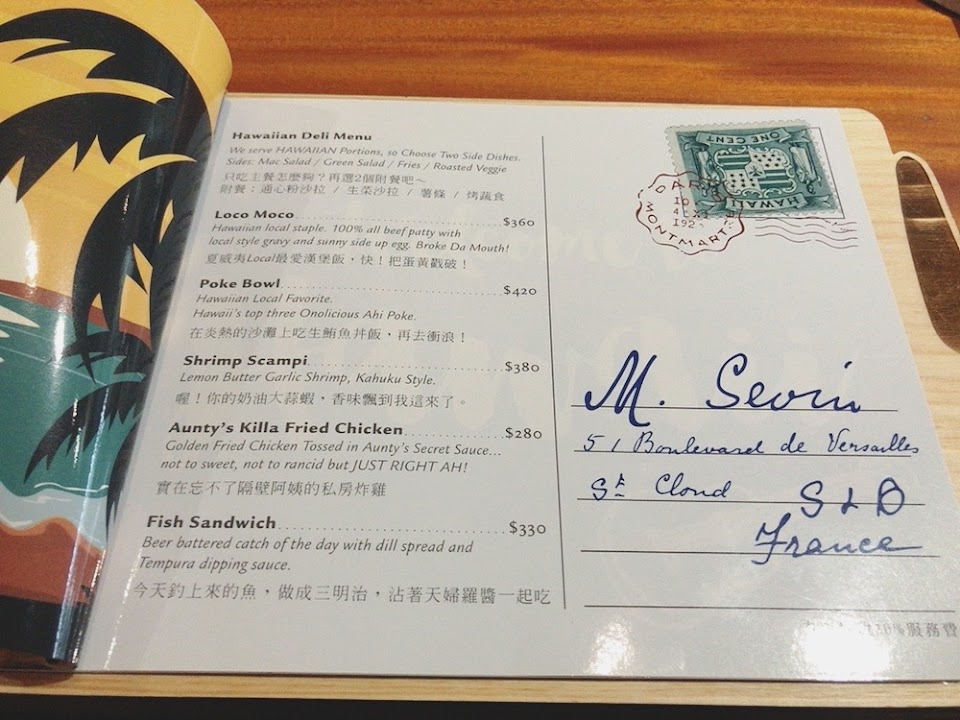 Hawaiian Deli Menu
We serve HAWAIIAN Portions, so Choose Two Side Dishes.
Sides: Mac Salad / Green Salad / Fries / Roasted Veggie
只吃主餐怎麼夠？再選2個附餐吧～
附餐：通心粉沙拉 / 生菜沙拉 / 薯條 / 烤蔬食
Loco Moco $360
Hawaiian local staple. 100% all beef patty with
local style gravy and sunny side up egg. Broke Da Mouth!
夏威夷Local最愛漢堡飯，快！把蛋黃戳破！
Poke Bowl $420
Hawaiian Local Favorite.
Hawaii's top three Onolicious Ahi Poke.
在炎熱的沙灘上吃生鮪魚丼飯，再去衝浪！
Shrimp Scampi $380
Lemon Butter Garlic Shrimp, Kahuku Style.
喔！你的奶油大蒜蝦，香味飄到我這來了。
Aunty's Killa Fried Chicken $280
Golden Fried Chicken Tossed in Aunty's Secret Sauce...
not to sweet, not to rancid but JUST RIGHT AH!
實在忘不了隔壁阿姨的私房炸雞
Fish Sandwich $330
Beer battered catch of the day with dill spread and
Tempura dipping sauce.
今天釣上來的魚，做成三明治，沾著天婦羅醬一起吃
ONE CENT
HAWAII
MONTMART
M. Sevin
51 Boulevard de Versailles
St Cloud S & O
France
10%服務費